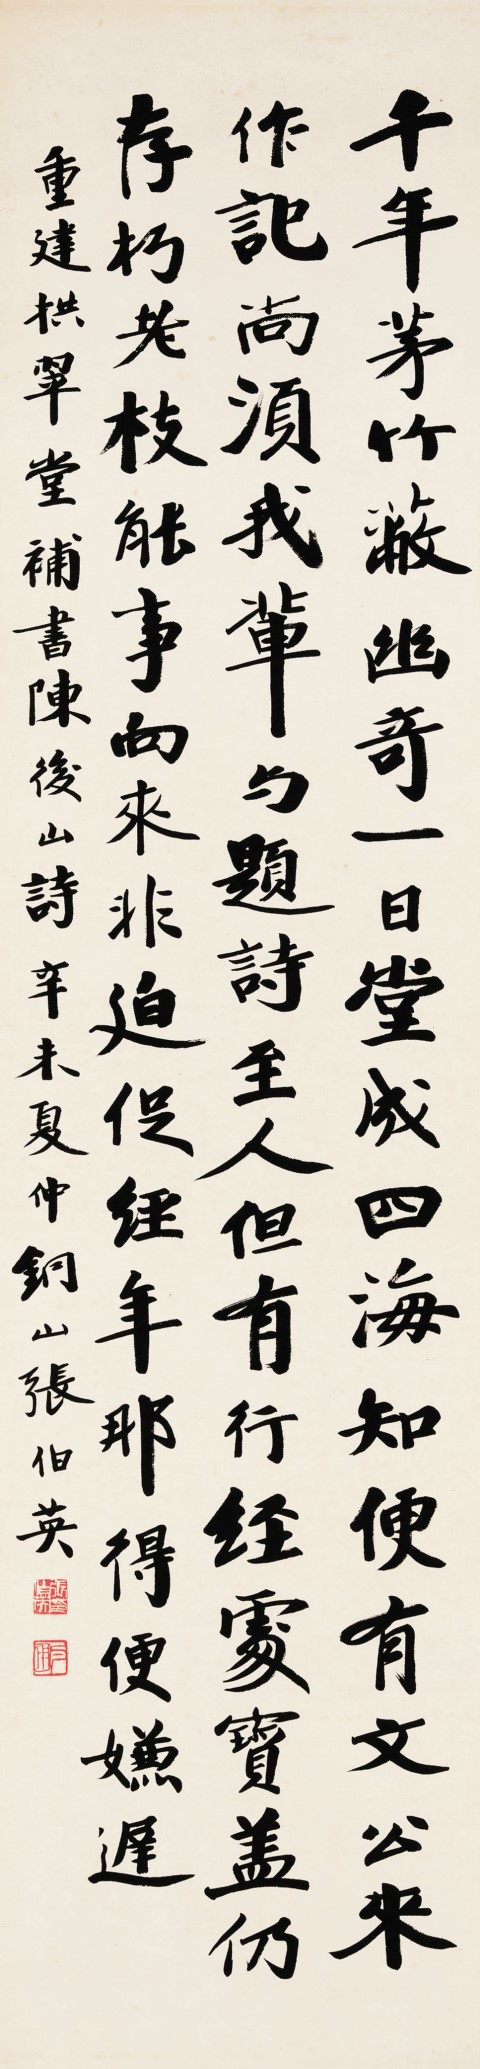 千年茅竹蔽幽奇一日堂成四海知便有文公來
作記尚須我輩与題詩至人但有行經處寶盖仍
存朽老枝能事向來非迫促經年那得便嫌遲
重建拱翠堂補書陳後山詩辛未夏仲銅山張伯英